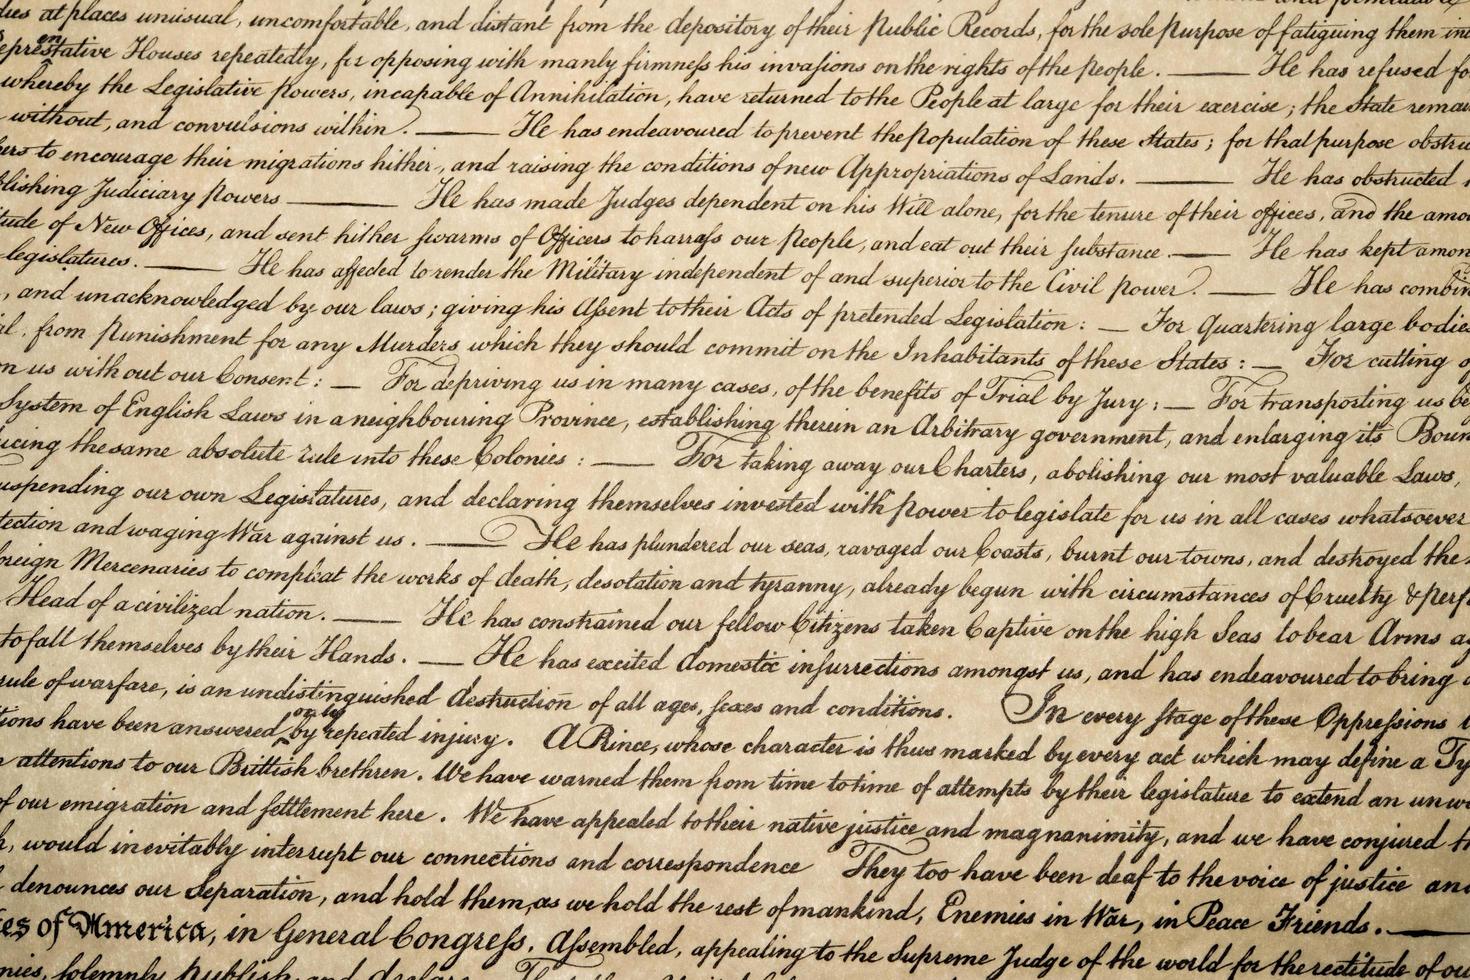 dies at places unusual, uncomfortable, and distant from the depository of their Public Records, for the sole purpose of fatiguing them in
Representative Houses repeatedly, for opposing with manly firmness his invasions on the rights of the people. — He has refused fo
whereby the Legislative powers, incapable of Annihilation, have returned to the People at large for their exercise; the State remai
without, and convulsions within. — He has endeavoured to prevent the population of these States; for that purpose obstru
hers to encourage their migrations hither, and raising the conditions of new Appropriations of Lands. — He has obstructed
blishing Judiciary powers — He has made Judges dependent on his Will alone, for the tenure of their offices, and the amou
itude of New Offices, and sent hither swarms of Officers to harrass our people, and eat out their substance. — He has kept among
legislatures. — He has affected to render the Military independent of and superior to the Civil power. — He has combin
, and unacknowledged by our laws; giving his Assent to their Acts of pretended Legislation: — For Quartering large bodies
al, from punishment for any Murders which they should commit on the Inhabitants of these States: — For cutting o
n us without our Consent: — For depriving us in many cases, of the benefits of Trial by Jury: — For transporting us be
System of English Laws in a neighbouring Province, establishing therein an Arbitrary government, and enlarging its Boun
ucing the same absolute rule into these Colonies: — For taking away our Charters, abolishing our most valuable Laws,
uspending our own Legislatures, and declaring themselves invested with power to legislate for us in all cases whatsoever
tection and waging War against us. — He has plundered our seas, ravaged our Coasts, burnt our towns, and destroyed the
oreign Mercenaries to compleat the works of death, desolation and tyranny, already begun with circumstances of Cruelty & perf
Head of a civilized nation. — He has constrained our fellow Citizens taken Captive on the high Seas to bear Arms ag
to fall themselves by their Hands. — He has excited domestic insurrections amongst us, and has endeavoured to bring o
rule of warfare, is an undistinguished destruction of all ages, sexes and conditions. In every stage of these Oppressions
tions have been answered only by repeated injury. A Prince, whose character is thus marked by every act which may define a Ty
attentions to our Brittish brethren. We have warned them from time to time of attempts by their legislature to extend an unwa
of our emigration and settlement here. We have appealed to their native justice and magnanimity, and we have conjured th
, would inevitably interrupt our connections and correspondence They too have been deaf to the voice of justice and
denounces our Separation, and hold them, as we hold the rest of mankind, Enemies in War, in Peace Friends. —
tes of America, in General Congress, Assembled, appealing to the Supreme Judge of the world for the rectitude of ou
nies, solemnly publish and declare,